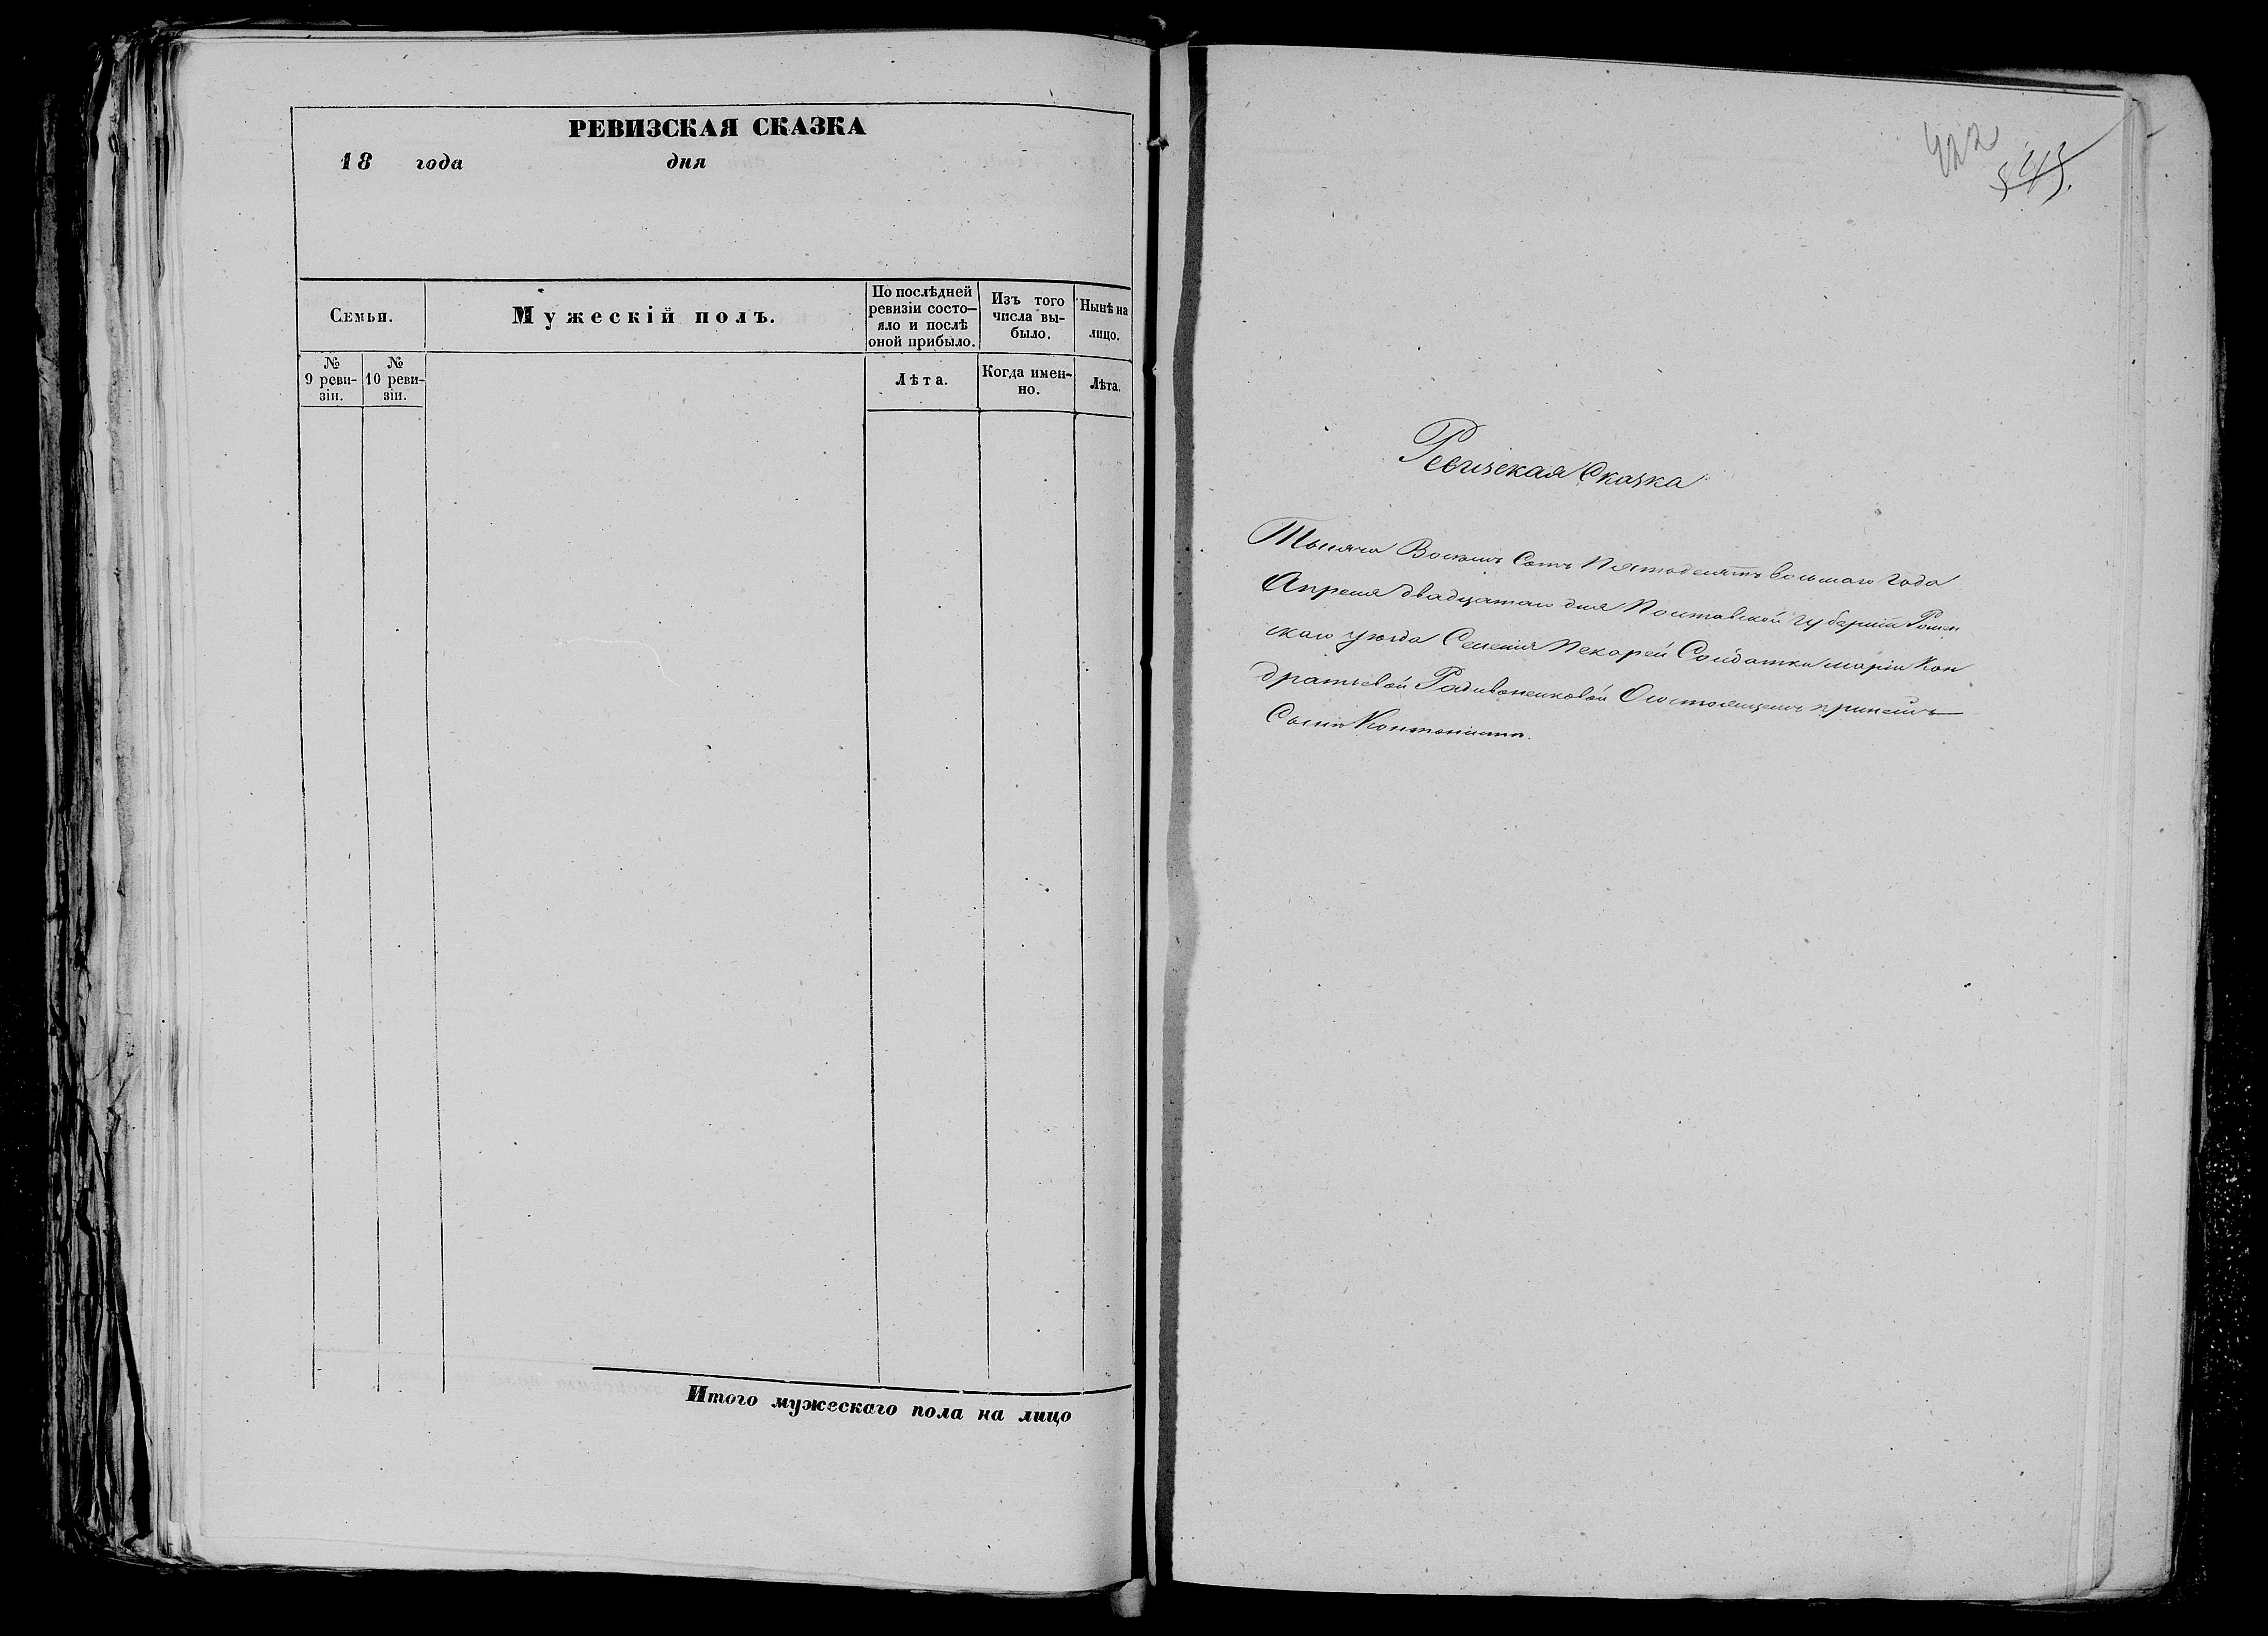 РЕВИЗСКАЯ СКАЗКА
18 года дня
Семьи.
Мужескій полъ.
По послѣдней
ревизіи состо-
яло и послѣ
оной прибыло.
Изъ того
числа вы-
было.
Нынѣ на
лицо.
№
9 реви-
зіи.
№
10 реви-
зіи.
Лѣта.
Когда имен-
но.
Лѣта.
Итого мужескаго пола на лицо
422
545.
Ревизская Сказка
Тысяча Восемь Сотъ Пятьдесятъ восьмаго года
Апреля двадцатаго дня Полтавской губерніи Ромен
скаго уезда Селенія Пекарей Солдатки маріи Кон
дратьевой Радивоненковой О состоящемъ принейъ
Сынѣ Кантонистѣ.